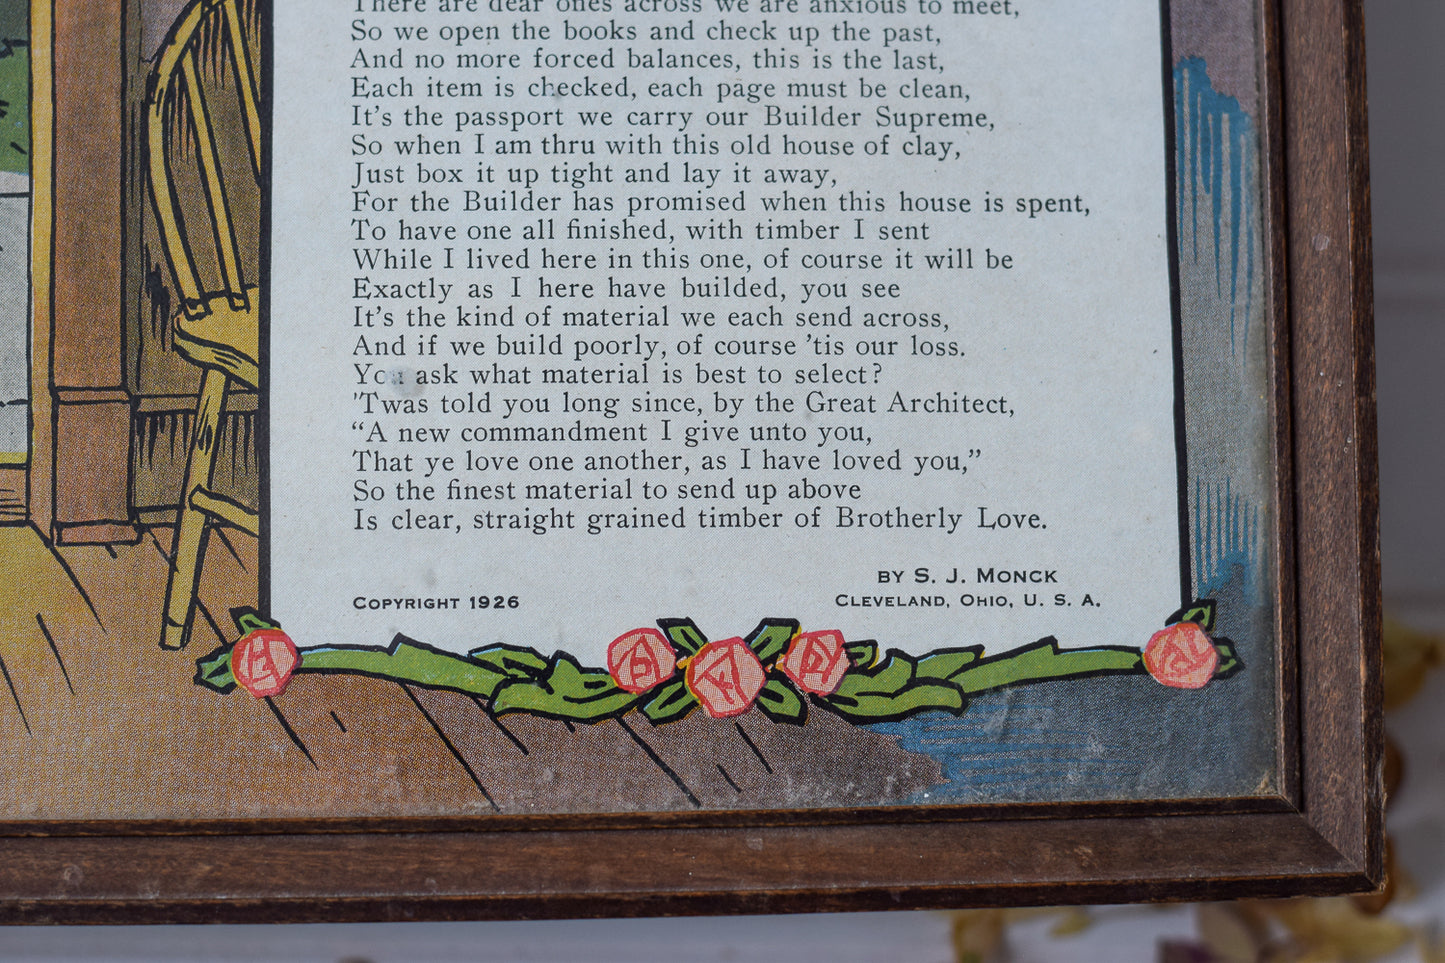 There are dear ones across we are anxious to meet,
So we open the books and check up the past,
And no more forced balances, this is the last,
Each item is checked, each page must be clean,
It's the passport we carry our Builder Supreme,
So when I am thru with this old house of clay,
Just box it up tight and lay it away,
For the Builder has promised when this house is spent,
To have one all finished, with timber I sent
While I lived here in this one, of course it will be
Exactly as I here have builded, you see
It's the kind of material we each send across,
And if we build poorly, of course 'tis our loss.
You ask what material is best to select?
'Twas told you long since, by the Great Architect,
“A new commandment I give unto you,
That ye love one another, as I have loved you,”
So the finest material to send up above
Is clear, straight grained timber of Brotherly Love.
BY S. J. MONCK
COPYRIGHT 1926
CLEVELAND, OHIO, U. S. A.